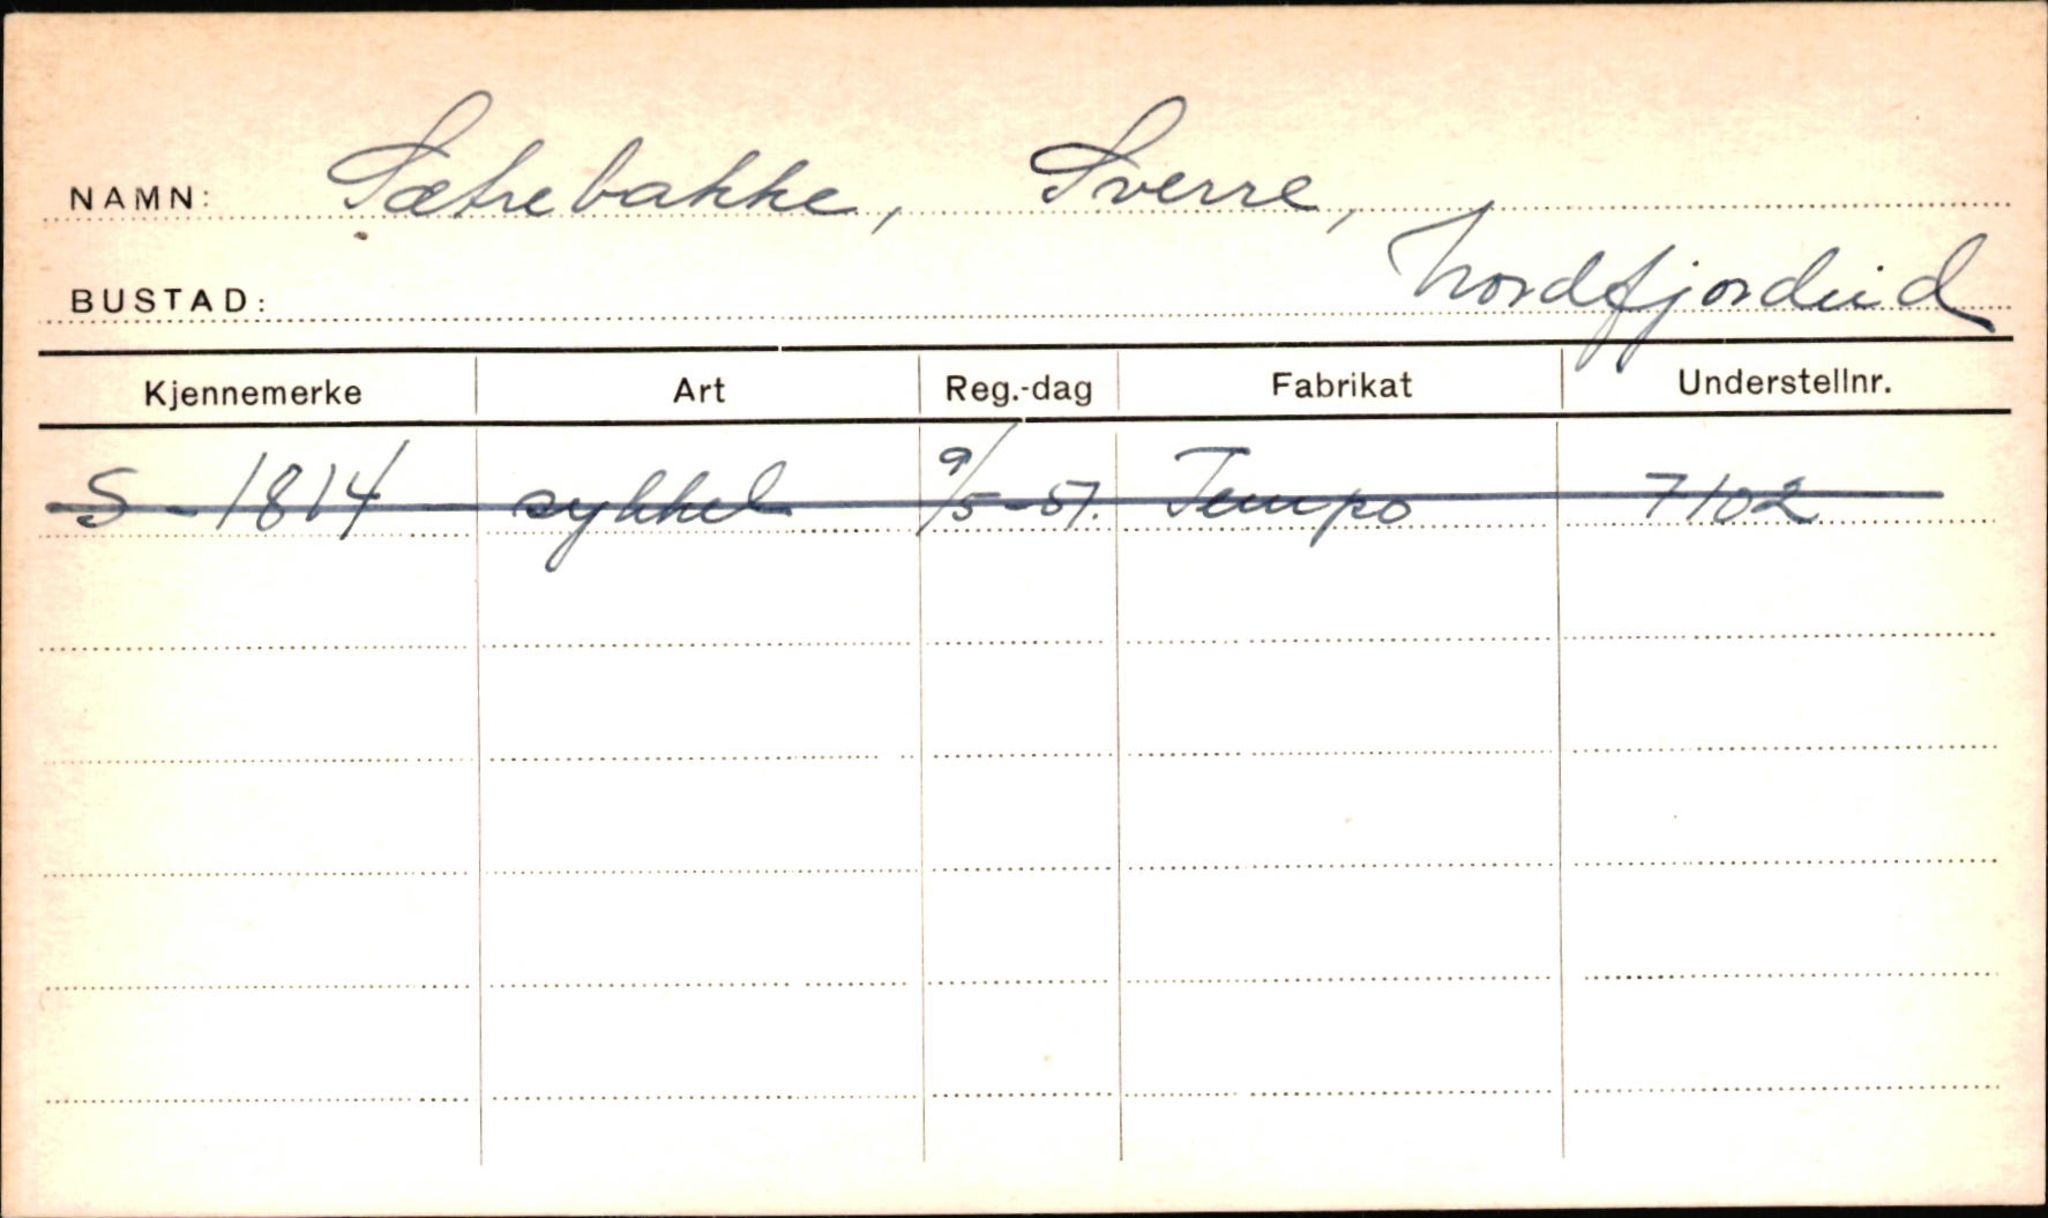 NAMN: Sætrebakke, Sverre,
BUSTAD: Nordfjordeid
Kjennemerke Art Reg.-dag Fabrikat Understellnr.
S-1814 sykkel 9/5-57. Tempo 7102